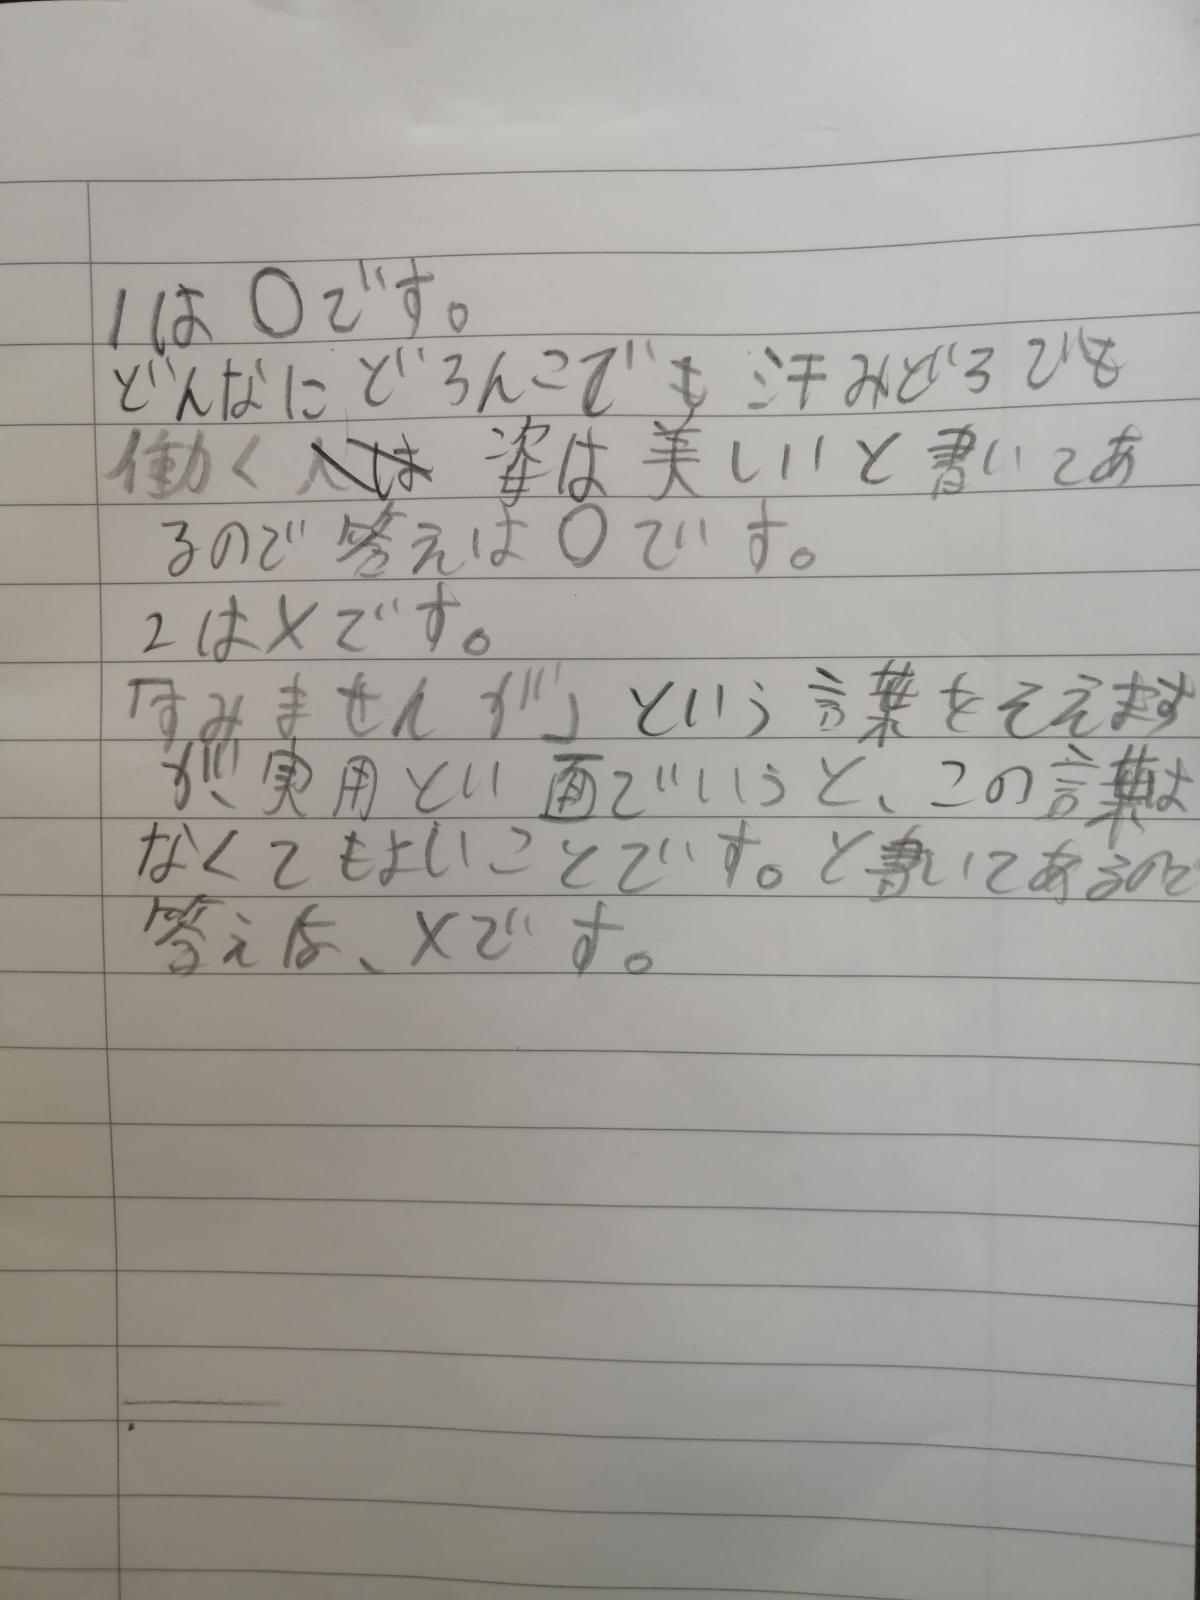 1は〇です。
どんなにどろんこでも汗みどろでも
働く姿は美しいと書いてあ
るので答えは〇です。
2は×です。
「すみませんが」という言葉をそえます
が、実用とい面でいうと、この言葉は
なくてもよいことです。と書いてあるので
答えは、×です。